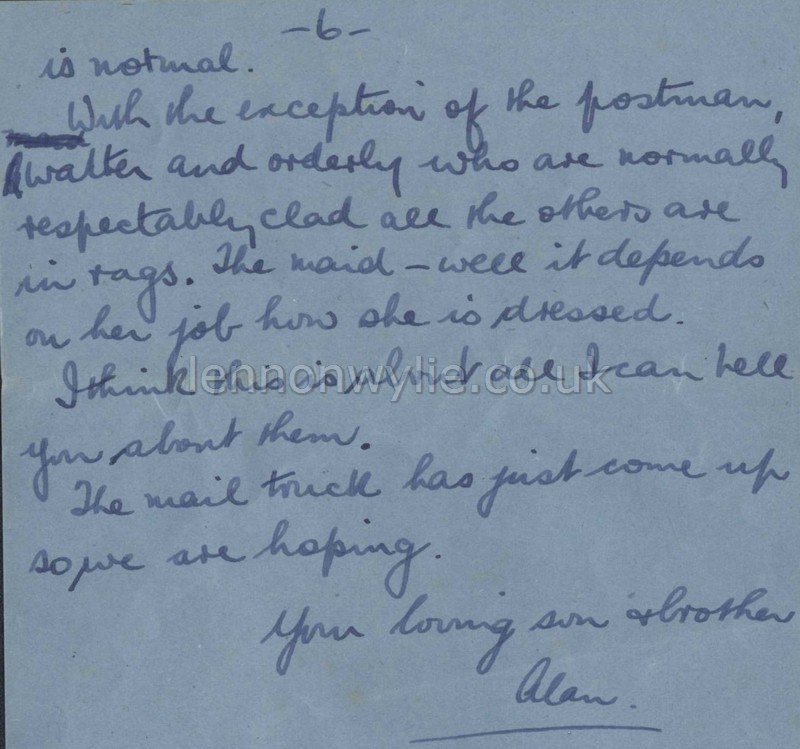 -6-
is normal.
With the exception of the postman,
walter and orderly who are normally
respectably clad all the others are
in rags. The maid - well it depends
on her job how she is dressed.
I think this is about all I can tell
lennonwylie.co.uk
you about them.
The mail truck has just come up
so, we are hoping.
Your loving son & brother
Alan.